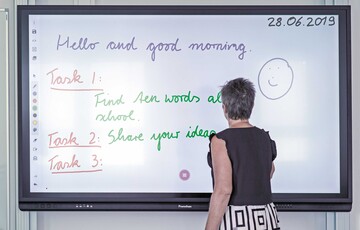 28.06.2019
Hello and good morning.
Task 1:
Find ten words
school.
Task 2: Share your ideas
Task 3: